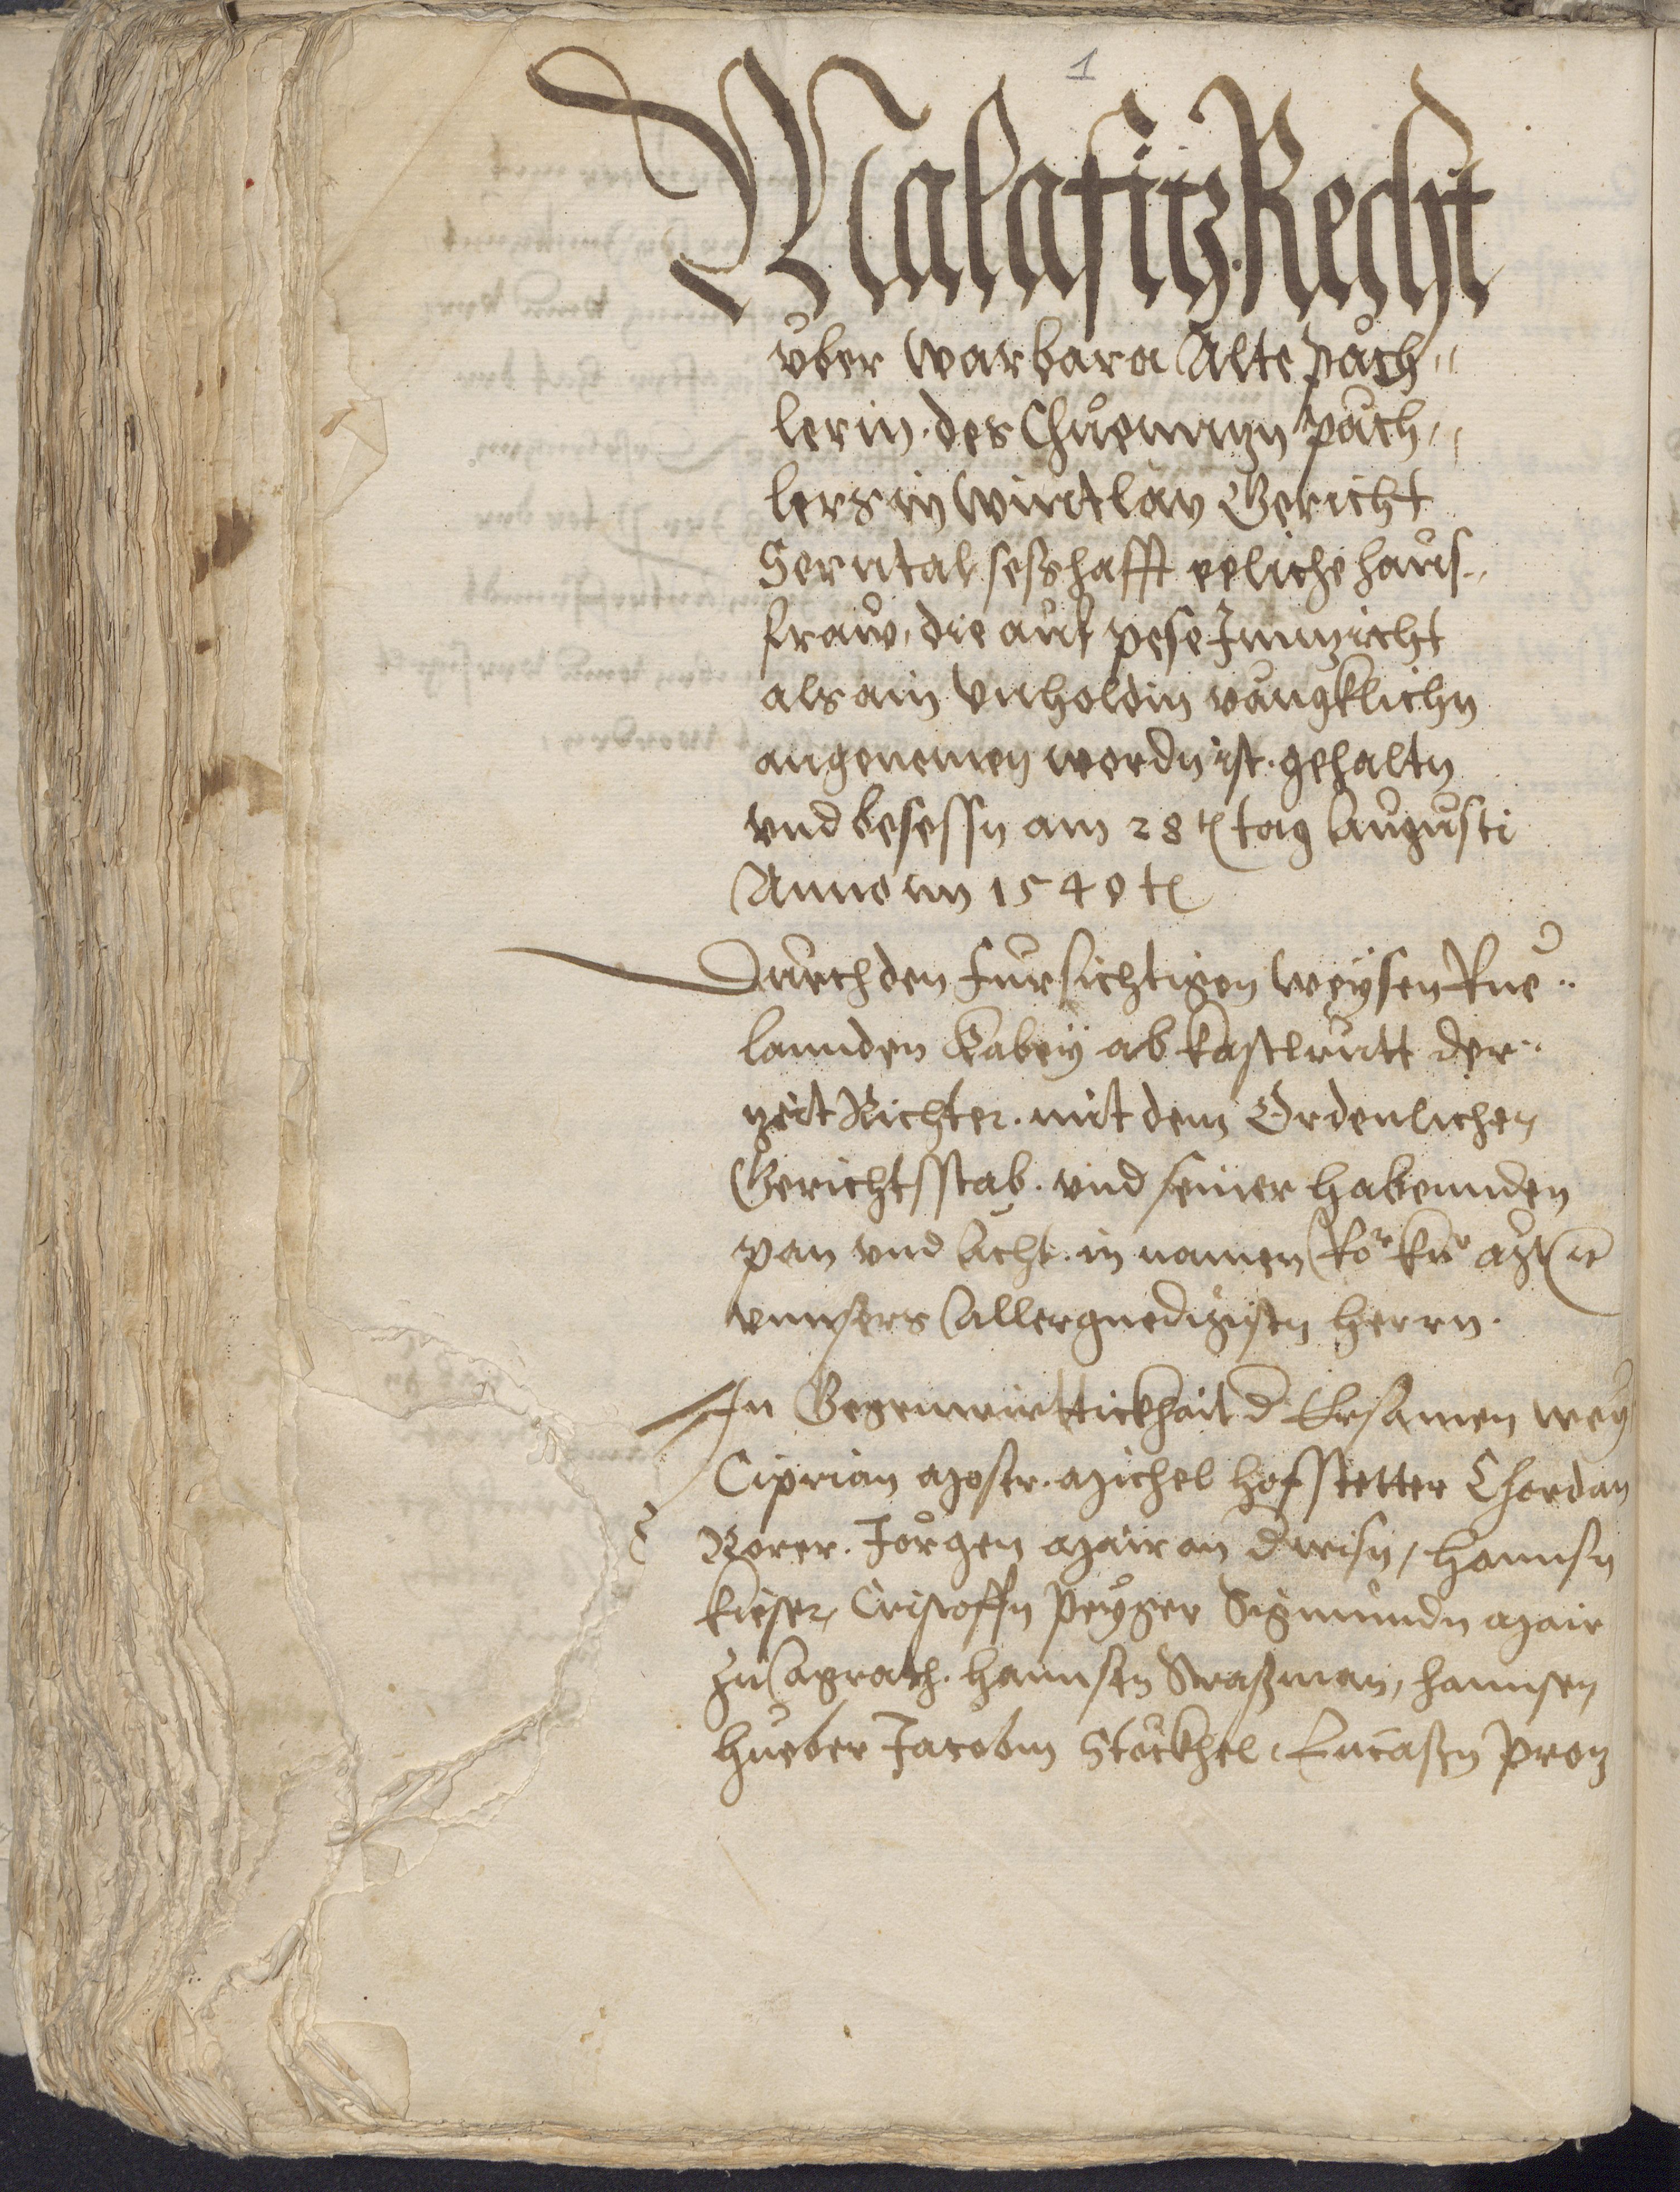 1
Malafitz Recht
vber Warbara Alte päch„
lerin. des Chuenntzn päch„
lers in Windtlan Gericht
Serntal seßhafft eeliche haus„
fraw, die auf pese Inntzicht
als ain Unholdin vängklichn
angenomen wordn ist. gehaltn
vnd besessn am 28 tn tag Augusti
Anno im 1540 tn
Durch den fursichtigen weysen Rue„
lannden Cabey ab Castlrutt der„
zeit Richter. mit dem Ordenlichen
Gerichtsstab. vnd seiner habennden
pan vnd acht. in namen Ro:r Ku:r Mt etc
vnnsers allergnedigistn herrn.
In Gegenwirttickhait d Ersamen wey
Ciprian Moser. Michel Hofstetter Chordan
Rorer. Jörgen Mair an Dwisn, Hannsn
kieser, Cristoffn Peyger Sigmundn Mair
zu Agrath. Hannsen Straßman, Hannsen
Hueber Jacobm Stöckhel, Lucassn Prantz